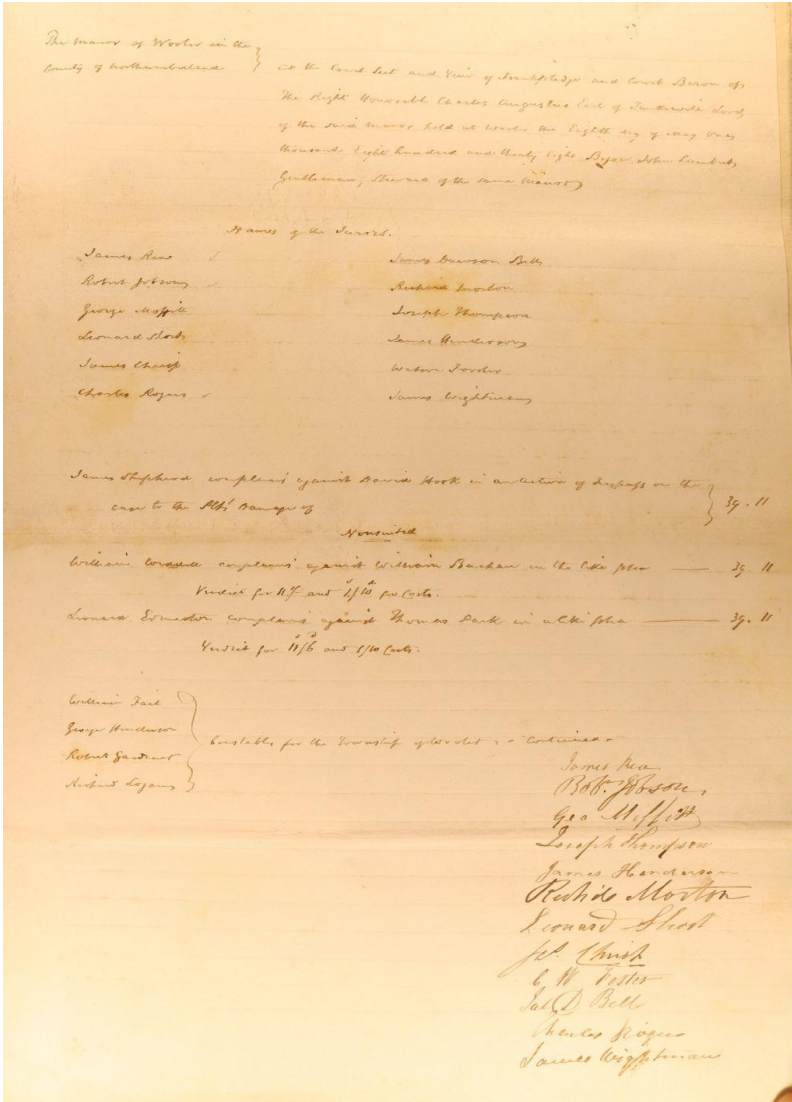 The Manor of Wooler in the
County of Northumberland
At the Court Leet and View of Frankpledge and Court Baron of
The Right Honorable Charles Augustus Earl of Tankerville Lord
of the said Manor held at Wooler the Eighth day of May One
thousand Eight hundred and thirty Eight Before John Lambert
Gentleman, Steward of the same Manor
Names of the Jurors.
James Rea
James Dawson Bell
Robert Jobson
Richard Morton
George Moffitt
Joseph Thompson
Leonard Short
James Henderson
James Chrisp
Charles Rogers
James Wightman
James Shepherd complains against David Hook in an Action of Trespass on the
case to the Plfs' Damage of
39 . 11
Nonsuited
William complains against William Buchan in the like plea
39 . 11
Verdict for and 1/10 for Costs.
Leonard Edmeston complains against Thomas Park in a like plea
39 . 11
Verdict for 11/6 and 1/10 Costs.
William Fail
George Henderson
Robert Gardner
Richard
Constables for the Township of Wooler - Continued -
James Rea
Robt. Jobson,
Geo Moffitt
Joseph Thompson
James Henderson
Richd. Morton
Leonard Short
Jas. Chrisp
C W Foster
Jas D Bell
Charles Rogers
James Wightman